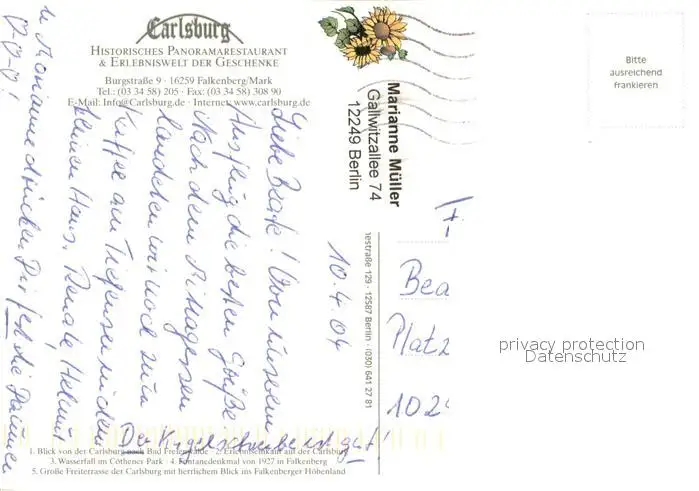 Carlsburg
HISTORISCHES PANORAMARESTAURANT
& ERLEBNISWELT DER GESCHENKE
Burgstraße 9 · 16259 Falkenberg/Mark
Tel.: (03 34 58) 205 · Fax: (03 34 58) 308 90
E-Mail: Info@Carlsburg.de · Internet: www.carlsburg.de
Liebe Beate! Von unserem
Ausflug die besten Grüße
Nach dem Mittagessen
landeten wir noch zum
Kaffee am
kleinen Haus. Renate, Helmut
u. Marianne drücken Dir fest die Daumen
10.4.04
Der Kugelschreiber ist gut!
1. Blick von der Carlsburg nach Bad Freienwalde · 2. Erlebniseinkauf auf der Carlsburg
3. Wasserfall im Cöthener Park · 4. Fontanedenkmal von 1927 in Falkenberg
5. Große Freiterrasse der Carlsburg mit herrlichem Blick ins Falkenberger Höhenland
Marianne Müller
Gallwitzallee 74
12249 Berlin
nestraße 129 · 12587 Berlin · (030) 641 27 81
Bitte
ausreichend
frankieren
Bea
Platz
102
privacy protection
Datenschutz